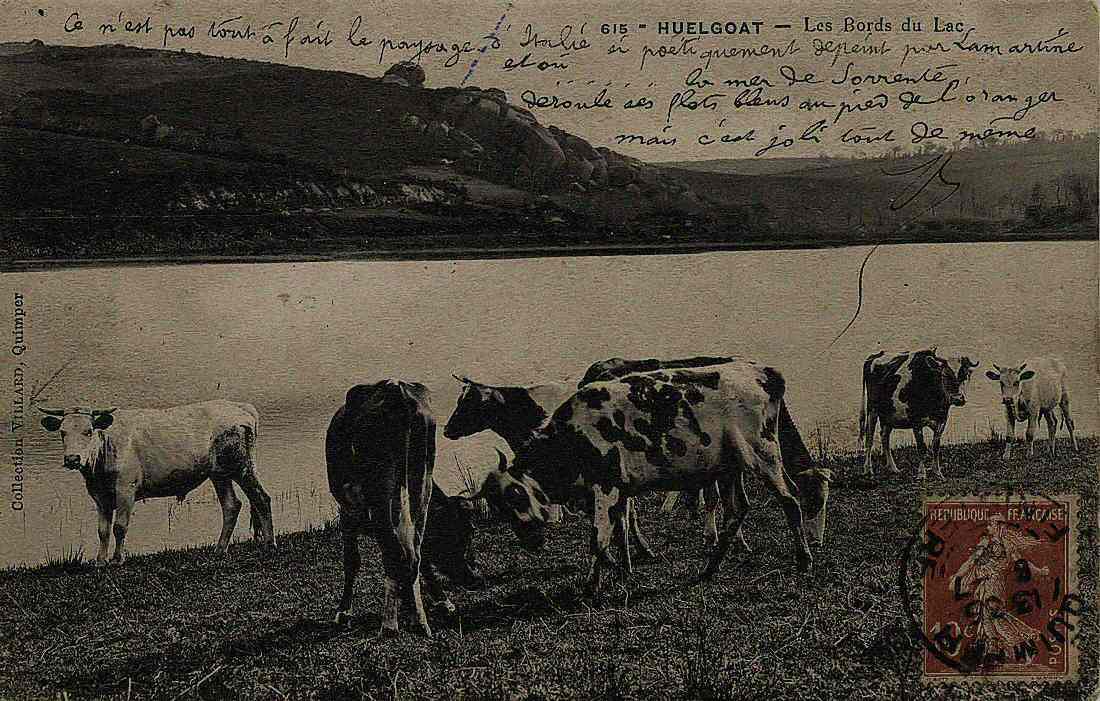 615 - HUELGOAT — Les Bords du Lac
Ce n'est pas tout à fait le paysage d'Italie si poetiquement depeint par Lamartine
et ou
la mer de Sorrente
déroule ses flots bleus au pied de l'oranger
mais c'est joli tout de même
Collection VILLARD, Quimper
REPUBLIQUE FRANÇAISE
10c
POSTES
QUIMPER